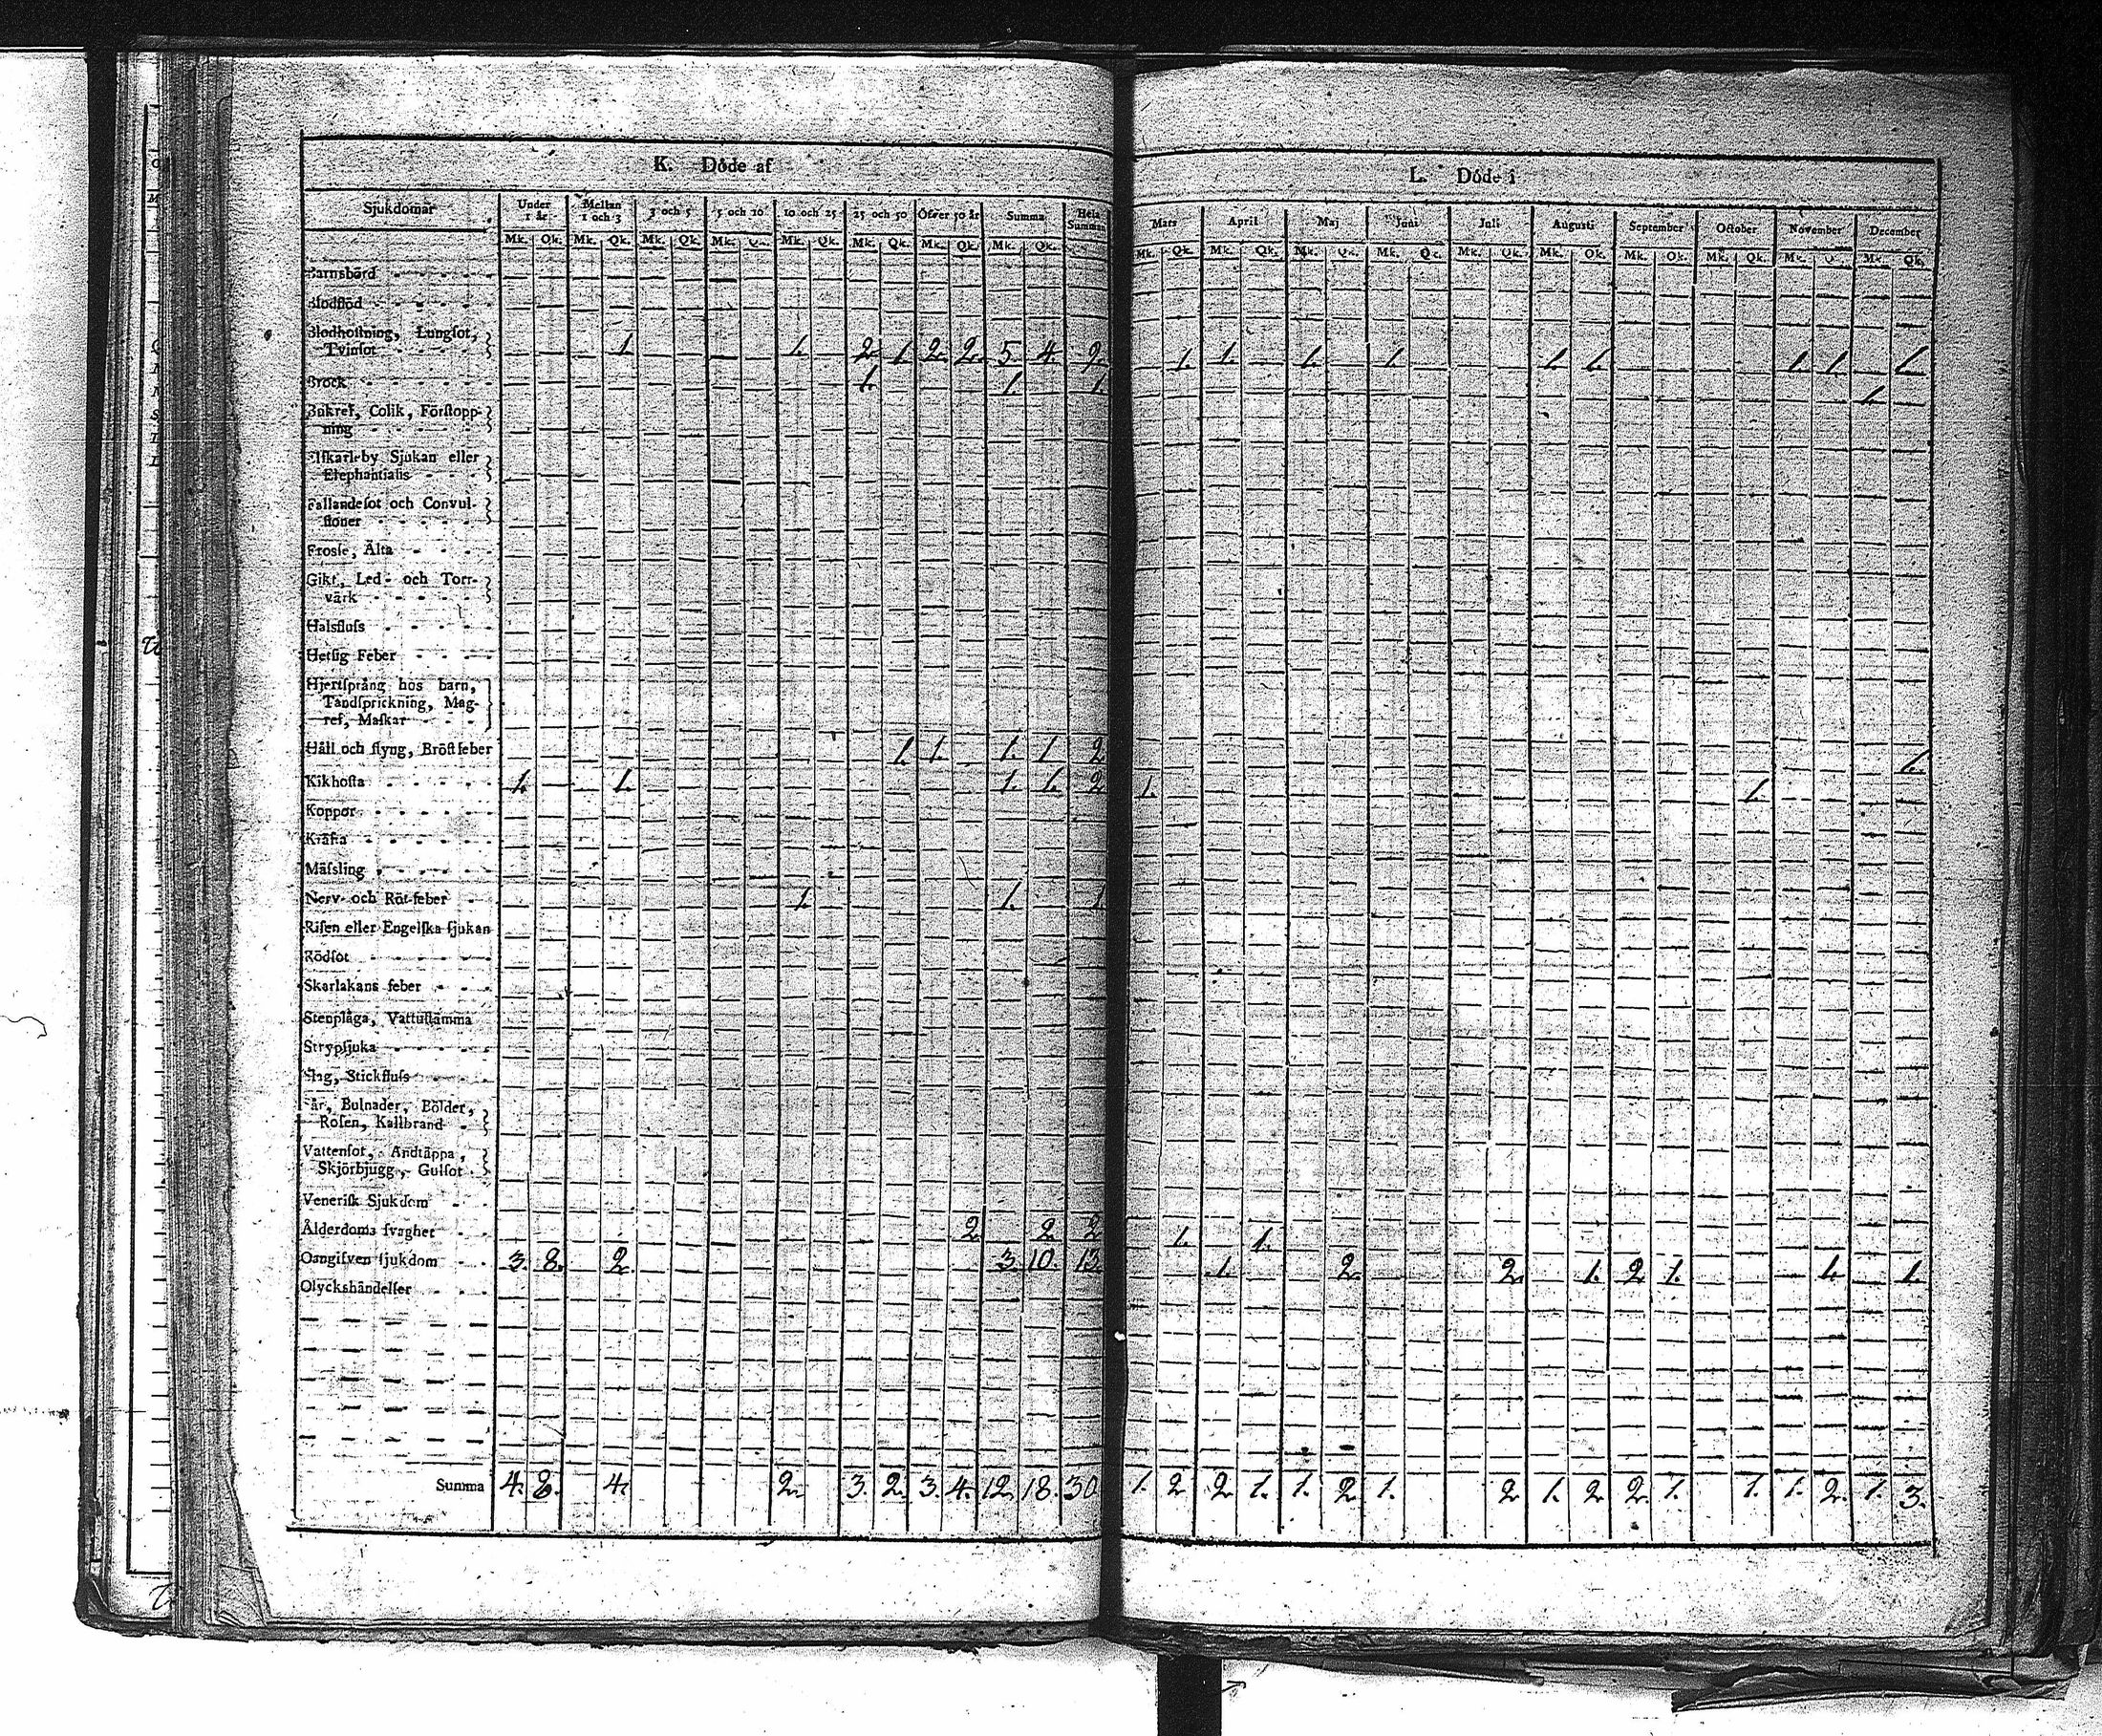 K. Döde af
Sjukdomar Under 1 år Mellan 1 och 3 3 och 5 5 och 10 10 och 25 25 och 50 Öfver 50 år Summa Hela Summan
Mk. Qk. Mk. Qk. Mk. Qk. Mk. Qk. Mk. Qk. Mk. Qk. Mk. Qk. Mk. Qk.
Barnsbörd
Blodflöd
Blodhoſtning, Lungſot,
Tvinſot 1. 1. 2. 1. 2. 2. 5. 4. 9.
Bråck 1. 1. 1.
Bukref, Colik, Förſtopp-
ning
Elſkarleby Sjukan eller
Elephantiaſis
Fallandeſot och Convul-
ſioner
Frosſe, Älta
Gikt, Led- och Torr-
värk
Halsfluſs
Hetſig Feber
Hjertſprång hos barn,
Tandſprickning, Mag-
ref, Maſkar
Håll och ſtyng, Bröſtfeber 1. 1. 1. 1 2
Kikhoſta 1. 1. 1. 1. 2
Koppor
Kräfta
Mäſsling
Nerv- och Röt-feber 1. 1. 1
Riſen eller Engelſka ſjukan
Rödſot
Skarlakans feber
Stenplåga, Vattuſtämma
Strypſjuka
Slag, Stickfluſs
Sår, Bulnader, Bölder,
Roſen, Kallbrand
Vattenſot, Andtäppa,
Skjörbjugg, Gulſot
Veneriſk Sjukdom
Ålderdoms ſvaghet 2 2. 2
Oangifven ſjukdom 3. 8. 2. 3. 10. 13
Olyckshändelſer
Summa 4. 8. 4. 2. 3. 2. 3. 4. 12. 18. 30
L. Döde i
Mars April Maj Juni Juli Augusti September October November December
Mk. Qk. Mk. Qk. Mk. Qk. Mk. Qk. Mk. Qk. Mk. Qk. Mk. Qk. Mk. Qk. Mk. Qk. Mk. Qk.
1. 1. 1. 1. 1. 1. 1. 1. 1.
1.
1.
1. 1.
1. 1.
1. 2. 2. 1. 2 1. 1. 1.
1. 2 2. 1. 1. 2. 1. 2 1. 2 2. 1. 1. 1. 2. 1. 3.